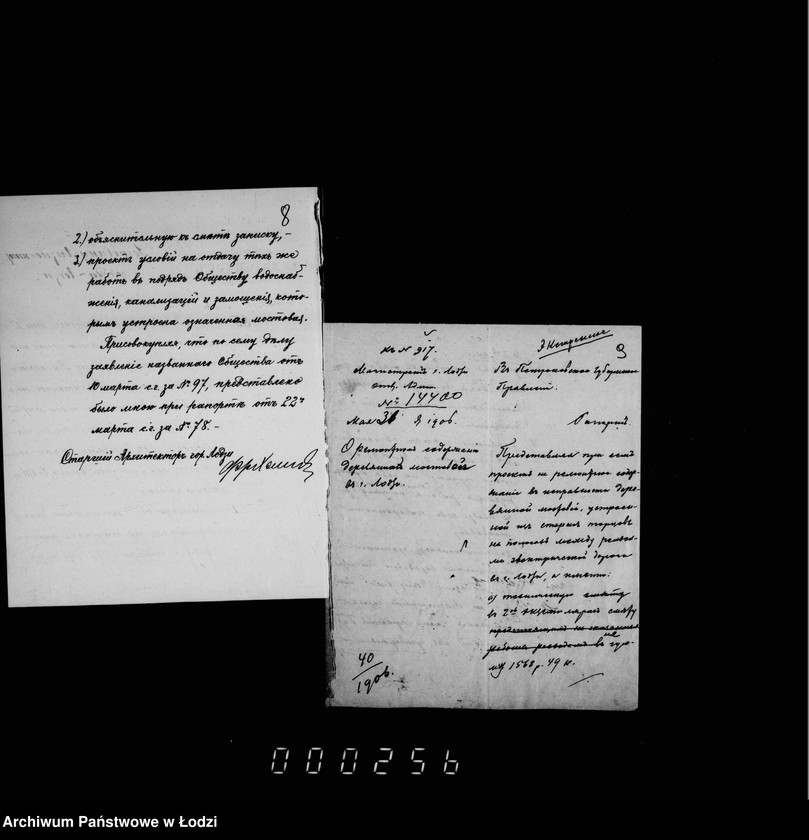 8
2.) объяснительную къ смѣтѣ записку,-
3.) проектъ условій на отдачу тѣхъ же
работъ въ подрядъ Обществу водоснаб-
женія, канализацій и замощенія, кото-
рымъ устроена означенная мостовая.
Присовокупляя, что по сему дѣлу
заявленіе названнаго Общества отъ
10 марта с.г. за № 97, представлено
было мною при рапортѣ отъ 22го
марта с.г. за № 78.-
Старшій Архитекторъ гор. Лодзи
9
къ № 917.
Магистратъ г. Лодзи
№ 14400
Мая 31 1906.
О ремонтѣ содержаніи
деревянной мостовой
въ г. Лодзи.
40
1906.
Въ Петроковское Губернское
Правленіе.
Рапортъ.
Представляя при семъ
проектъ на ремонтное содер-
жаніе въ исправности дере-
вянной мостовой, устроен-
ной изъ старыхъ торцовъ
на полосѣ между рельса-
ми электрической дороги
въ г. Лодзи, а именно:
смѣту
въ 2хъ
1568 р. 49 к.
000256
Archiwum Państwowe w Łodzi